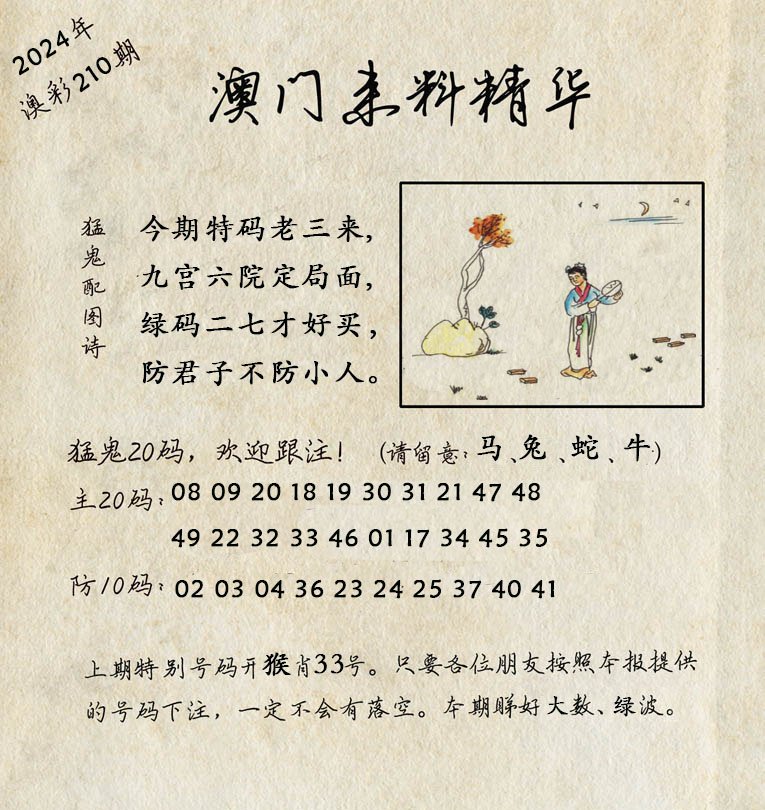 2024年
澳彩210期
澳门来料精华
猛鬼配图诗
今期特码老三来，
九宫六院定局面，
绿码二七才好买，
防君子不防小人。
猛鬼20码，欢迎跟注！（请留意：马、兔、蛇、牛）
主20码：08 09 20 18 19 30 31 21 47 48
49 22 32 33 46 01 17 34 45 35
防10码：02 03 04 36 23 24 25 37 40 41
上期特别号码开猴肖33号。只要各位朋友按照本报提供
的号码下注，一定不会有落空。本期睇好大数、绿波。